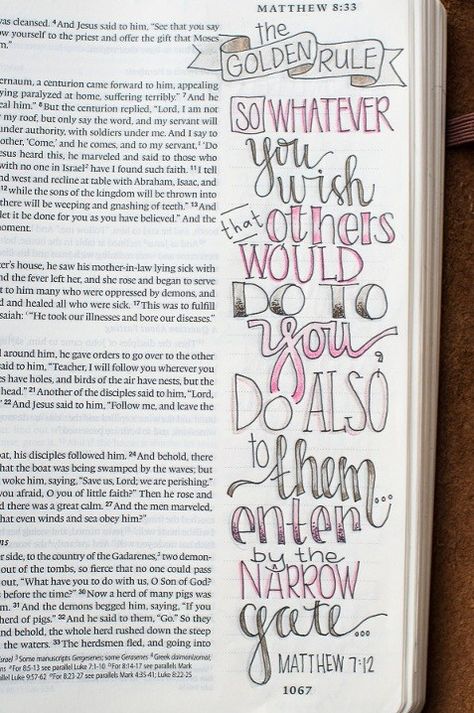 MATTHEW 8:33
was cleansed. 4And Jesus said to him, "See that you say
ow yourself to the priest and offer the gift that Moses
m."
ernaum, a centurion came forward to him, appealing
ying paralyzed at home, suffering terribly." 7And he
eal him." 8But the centurion replied, "Lord, I am not
my roof, but only say the word, and my servant will
under authority, with soldiers under me. And I say to
other, 'Come,' and he comes, and to my servant, 'Do
Jesus heard this, he marveled and said to those who
with no one in Israel2 have I found such faith. 11I tell
and west and recline at table with Abraham, Isaac, and
12while the sons of the kingdom will be thrown into
there will be weeping and gnashing of teeth." 13And
let it be done for you as you have believed." And the
moment.
er's house, he saw his mother-in-law lying sick with
nd the fever left her, and she rose and began to serve
t to him many who were oppressed by demons, and
d and healed all who were sick. 17This was to fulfill
saiah: "He took our illnesses and bore our diseases."
around him, he gave orders to go over to the other
said to him, "Teacher, I will follow you wherever you
es have holes, and birds of the air have nests, but the
head." 21Another of the disciples said to him, "Lord,
22And Jesus said to him, "Follow me, and leave the
oat, his disciples followed him. 24And behold, there
that the boat was being swamped by the waves; but
woke him, saying, "Save us, Lord; we are perishing."
you afraid, O you of little faith?" Then he rose and
there was a great calm. 27And the men marveled,
hat even winds and sea obey him?"
ns
er side, to the country of the Gadarenes,2 two demon-
out of the tombs, so fierce that no one could pass
out, "What have you to do with us, O Son of God?
s before the time?" 30Now a herd of many pigs was
m. 31And the demons begged him, saying, "If you
herd of pigs." 32And he said to them, "Go." So they
nd behold, the whole herd rushed down the steep
the waters. 33The herdsmen fled, and going into
Israel 3 Some manuscripts Gergesenes; some Gerasenes 4 Greek daimonizomai,
8:5-13 see parallel Luke 7:1-10 For 8:14-17 see parallels Mark
parallel Luke 9:57-60 For 8:23-27 see parallels Mark 4:35-41; Luke 8:22-25
the
GOLDEN RULE
SO WHATEVER
you
wish
that others
WOULD
DO TO
you,
DO ALSO
to
them...
enter
by the
NARROW
gate...
MATTHEW 7:12
1067